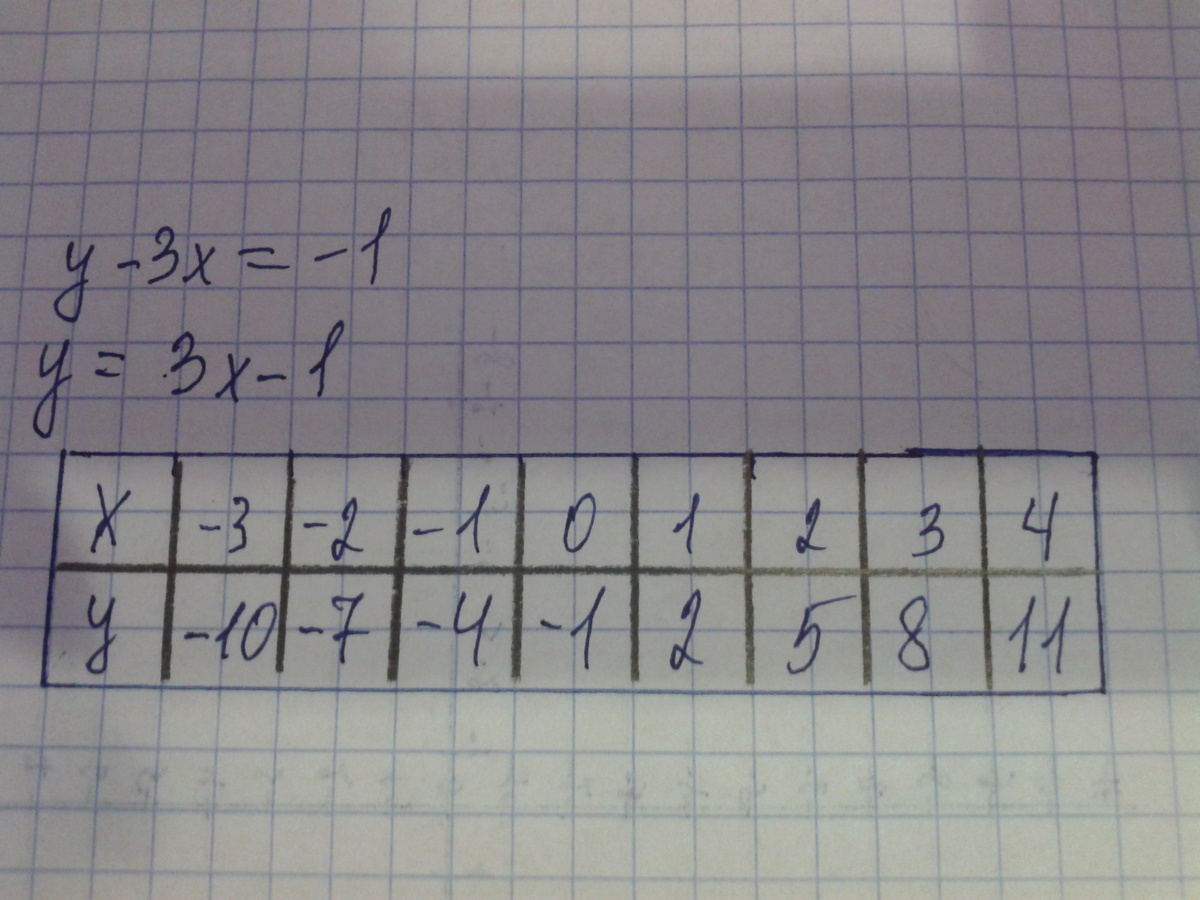 y - 3x = -1
y = 3x - 1
x -3 -2 -1 0 1 2 3 4
y -10 -7 -4 -1 2 5 8 11